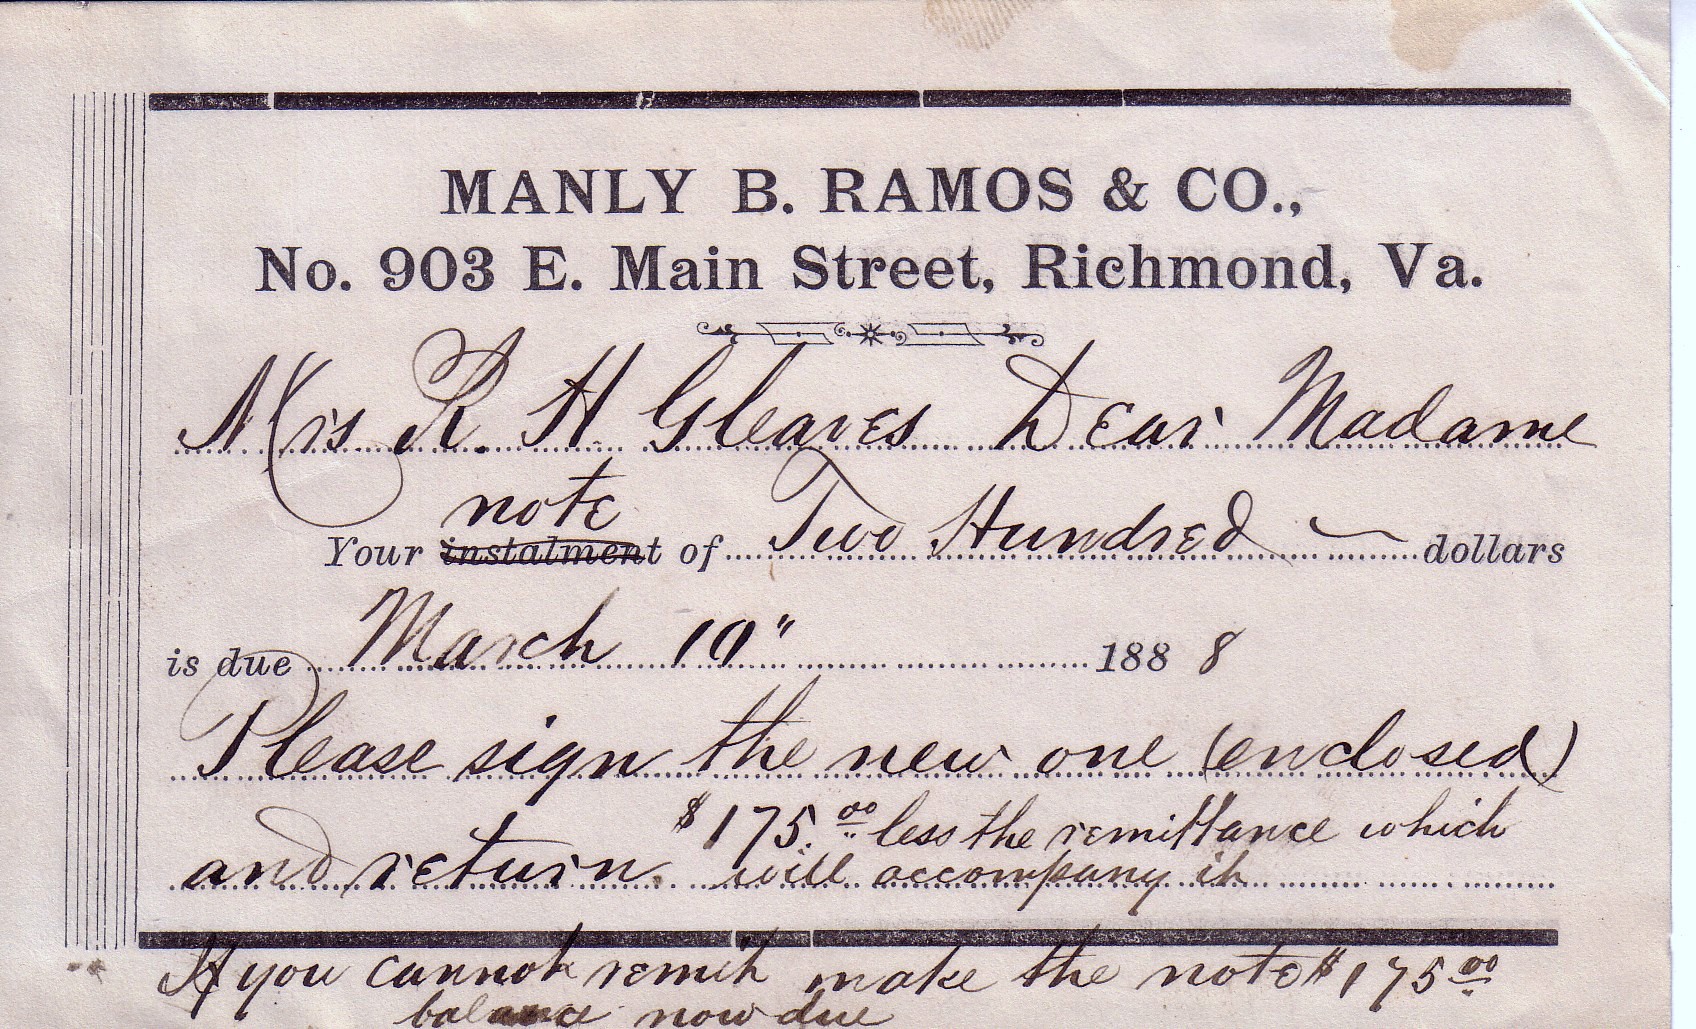 MANLY B. RAMOS & CO.,
No. 903 E. Main Street, Richmond, Va.
Mrs R. H. Gleaves Dear Madame
note
Your instalment of Two Hundred dollars
is due March 10" 1888
Please sign the new one (enclosed)
$175.00 less the remittance which
and return. will accompany it
If you cannot remit make the note $175 00
balance now due